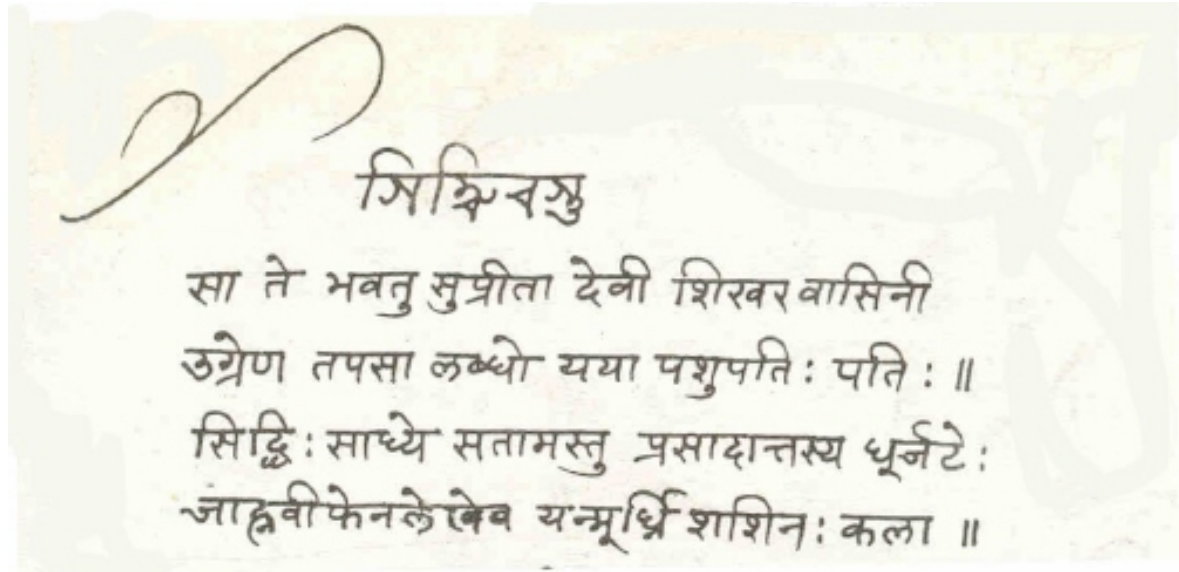 सा ते भवतु सुप्रीता देवी शिखरवासिनी
उग्रेण तपसा लब्धो यया पशुपतिः पतिः ॥
सिद्धिः साध्ये सतामस्तु प्रसादात्तस्य धूर्जटेः
जाह्नवीफेनलेखेव यन्मूर्ध्नि शशिनः कला ॥